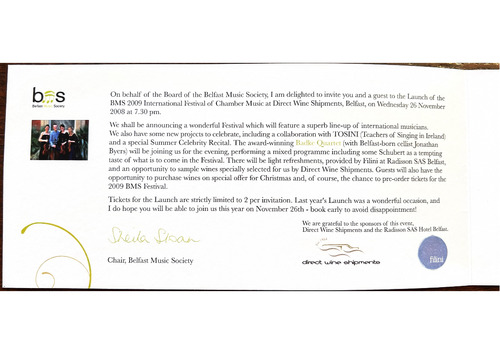 bms
Belfast Music Society
On behalf of the Board of the Belfast Music Society, I am delighted to invite you and a guest to the Launch of the
BMS 2009 International Festival of Chamber Music at Direct Wine Shipments, Belfast, on Wednesday 26 November
2008 at 7.30 pm.
We shall be announcing a wonderful Festival which will feature a superb line-up of international musicians.
We also have some new projects to celebrate, including a collaboration with TOSINI (Teachers of Singing in Ireland)
and a special Summer Celebrity Recital. The award-winning Badke Quartet (with Belfast-born cellist Jonathan
Byers) will be joining us for the evening, performing a mixed programme including some Schubert as a tempting
taste of what is to come in the Festival. There will be light refreshments, provided by Filini at Radisson SAS Belfast,
and an opportunity to sample wines specially selected for us by Direct Wine Shipments. Guests will also have the
opportunity to purchase wines on special offer for Christmas and, of course, the chance to pre-order tickets for the
2009 BMS Festival.
Tickets for the Launch are strictly limited to 2 per invitation. Last year's Launch was a wonderful occasion, and
I do hope you will be able to join us this year on November 26th - book early to avoid disappointment!
We are grateful to the sponsors of this event,
Direct Wine Shipments and the Radisson SAS Hotel Belfast.
Sheila Sloan
Chair, Belfast Music Society
direct wine shipments
filini